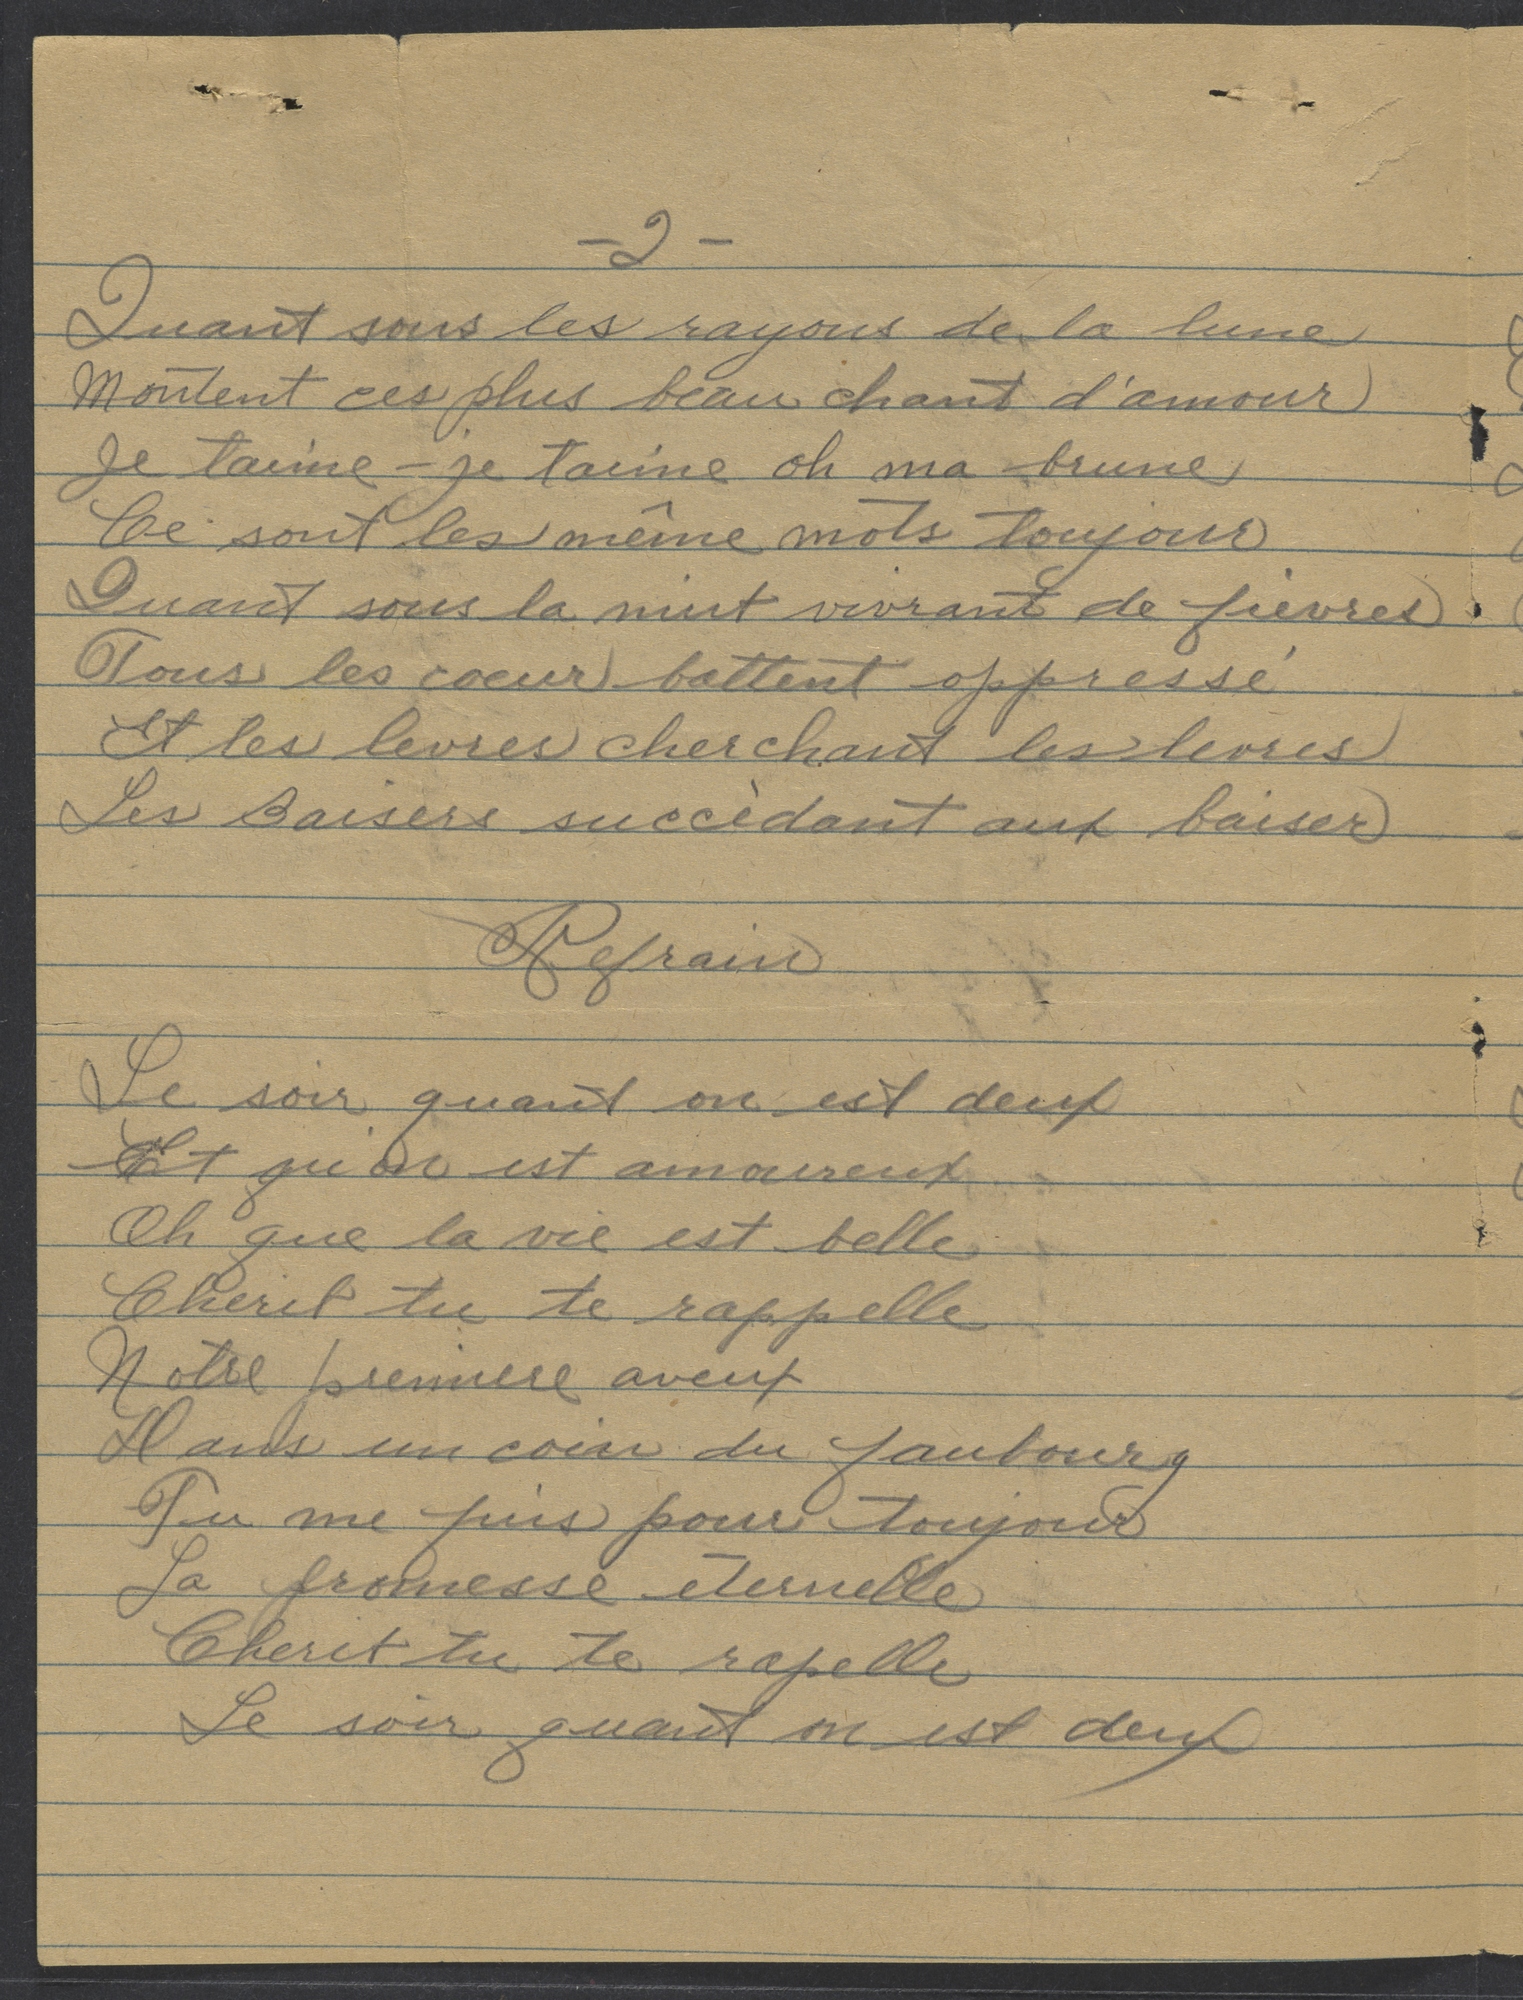 -2-
Quant sous les rayons de la lune
Montent ces plus beau chant d'amour
Je taime - je taime oh ma brune
Ce sont les même mots toujour
Quant sous la nuit vivrant de fièvres
Tous les coeur battent oppressé
Et les levres cherchant les levres
Les Baisers succèdant aux baiser
Refrain
Le soir quant on est deux
Et qu'on est amoureux
Oh que la vie est belle
Cherit tu te rappelle
Notre premiere aveux
Dans un coin du faubourg
Tu me fuis pour toujour
La promesse éternelle
Cherit tu te rapelle
Le soir quant on est deux